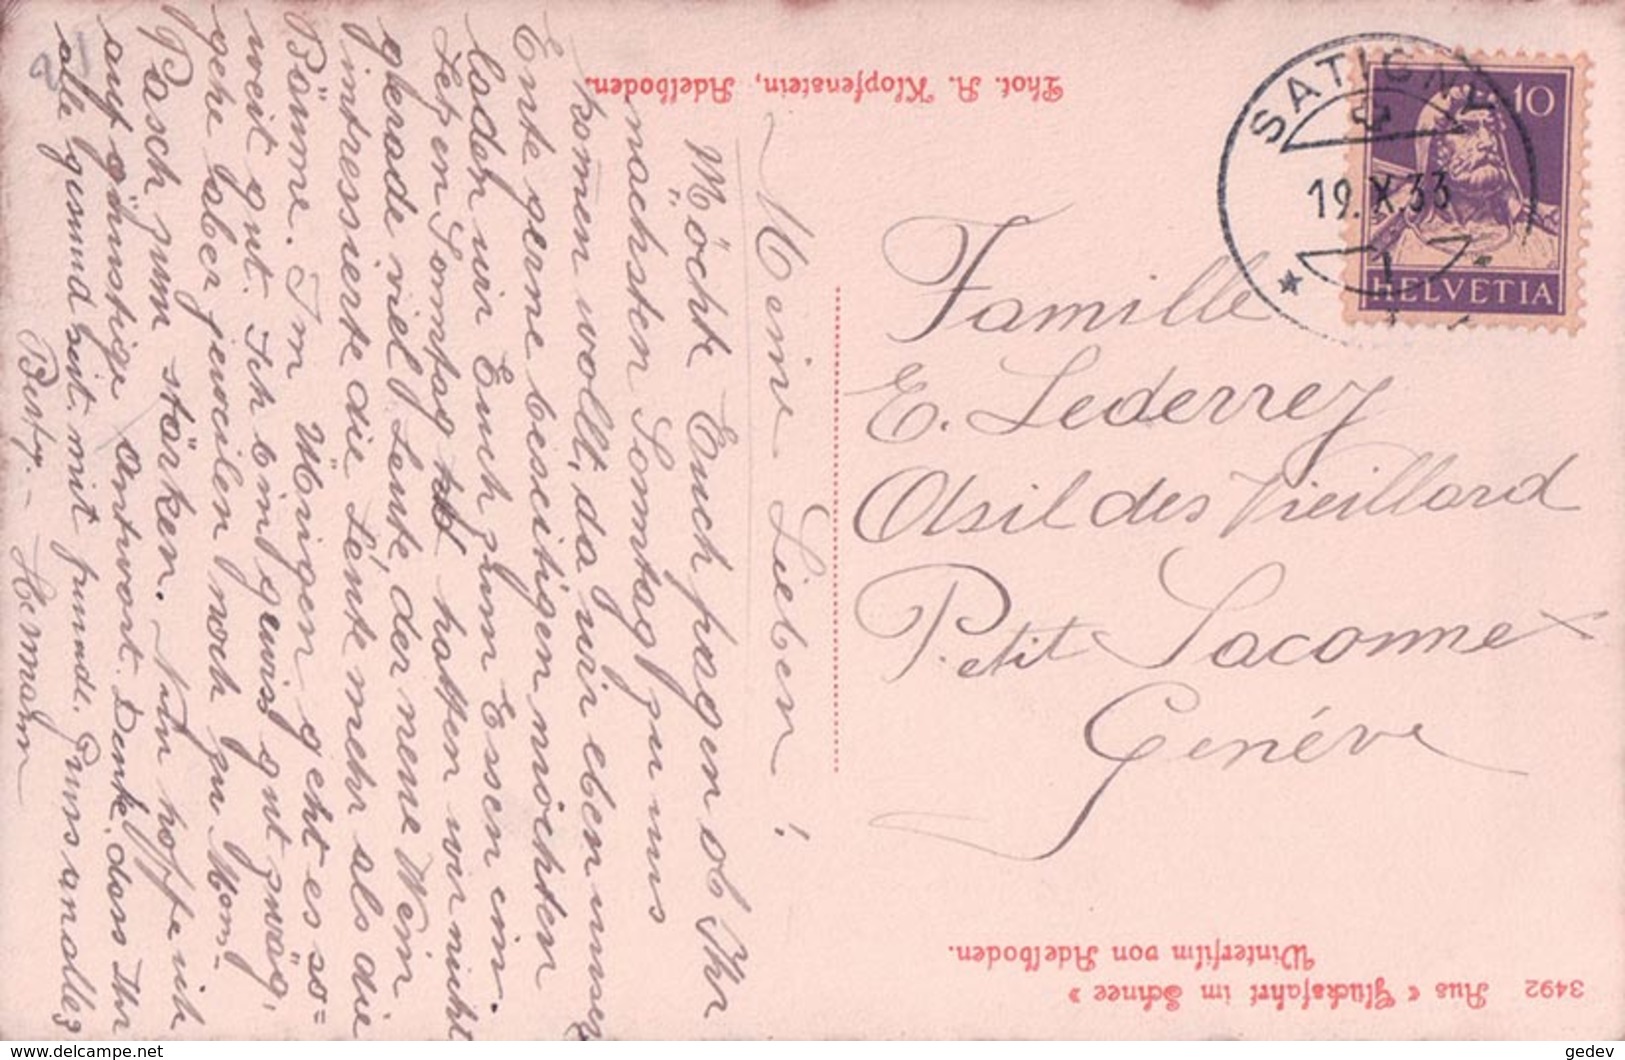 Meine Lieben!
Möcht Euch fragen ob Ihr
nächsten Sonntag zu uns
kommen wollt, da wir eben unsere
Ente gerne beseitigen möchten
laden wir Euch zum Essen ein.
Letzen Sonntag hatten wir nicht
gerade viel Leute, der neue Wein
intressierte die Leute mehr als die
Bäume. Im Übrigen geht es so=
weit gut. Ich bin gewiss gut zwäg,
gehe aber jeweilen noch zu Mon-
Pasch zum stärken. Nun hoffe ich
auf günstige Antwort. Denke, dass Ihr
alle gesund seit. mit freundl. Gruss an alle
Berty. - Hermann
Phot. A. Klopfenstein, Adelboden.
SATIGNY
19.X.33
1
10
HELVETIA
Famille
E. Lederrey
Asil des Vieillard
Petit Saconnex
Genéve
3492 Aus «Glücksfahrt im Schnee»
Winterfilm von Adelboden.
https://www.delcampe.net
gedev